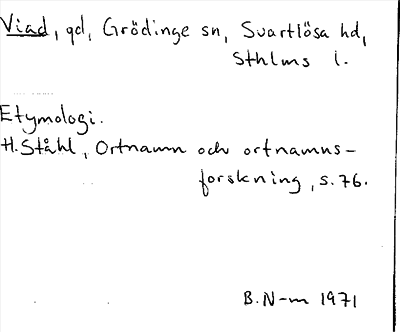 Viad, gd, Grödinge sn, Svartlösa hd,
Sthlms l.
Etymologi.
H. Ståhl, Ortnamn och ortnamns-
forskning, s. 76.
B. N-m 1971